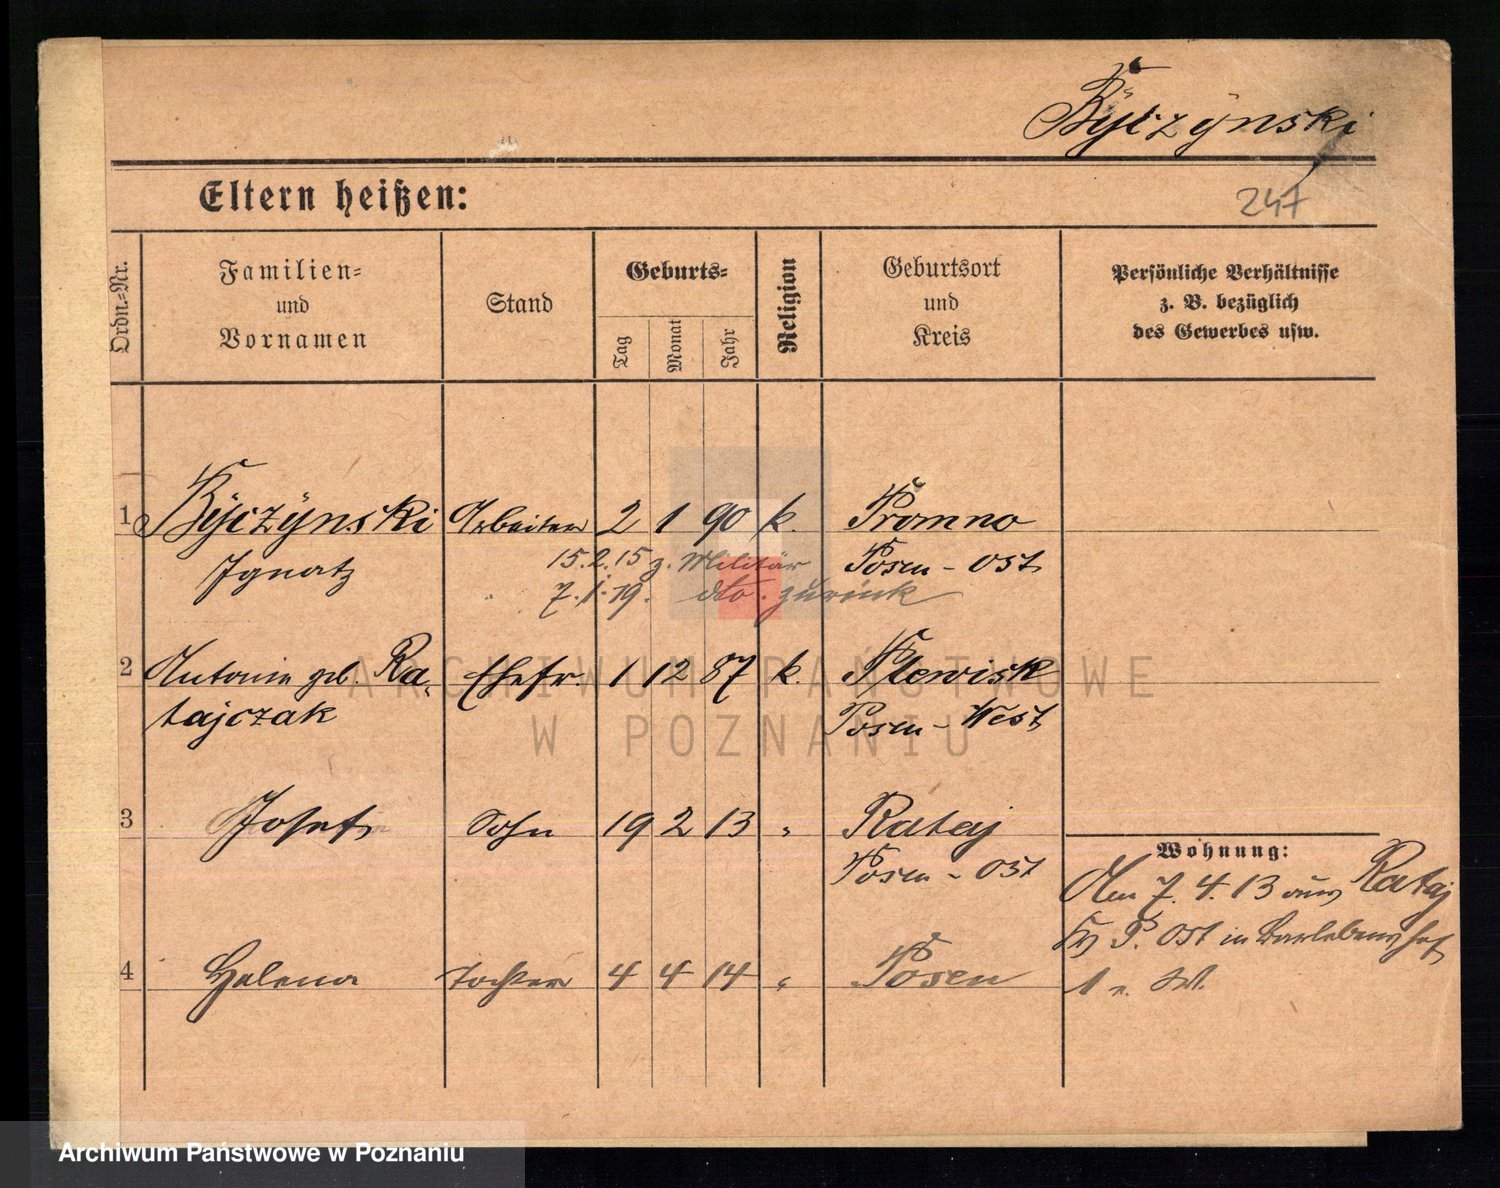 Byczynski
Eltern heißen:
247
Ordn.-Nr.
Familien-
und
Vornamen
Stand
Geburts-
Tag
Monat
Jahr
Religion
Geburtsort
und
Kreis
Persönliche Verhältnisse
z. B. bezüglich
des Gewerbes usw.
1 Byczynski Arbeiter 2 1 90 k. Promno
Ignatz 15.2.15 z. Militär Posen-Ost
7.1.19. dto. zurück
2 Antonie geb. Ra- Ehefr. 1 12 87 k. Plewisk
tajczak Posen-West
3 Josef Sohn 19 2 13 " Rataj
Posen-Ost
Wohnung:
Am 7. 4. 13 aus Rataj
P. Ost in
4 Helena Tochter 4 4 14 " Posen
1
ARCHIWUM PAŃSTWOWE
W POZNANIU
Archiwum Państwowe w Poznaniu